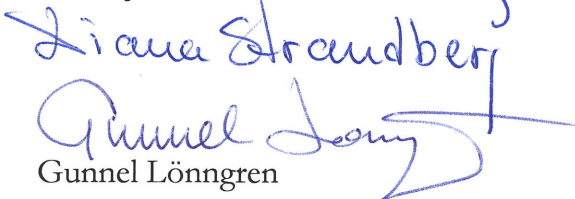 Diana Strandberg
Gunnel Lönngren
Gunnel Lönngren